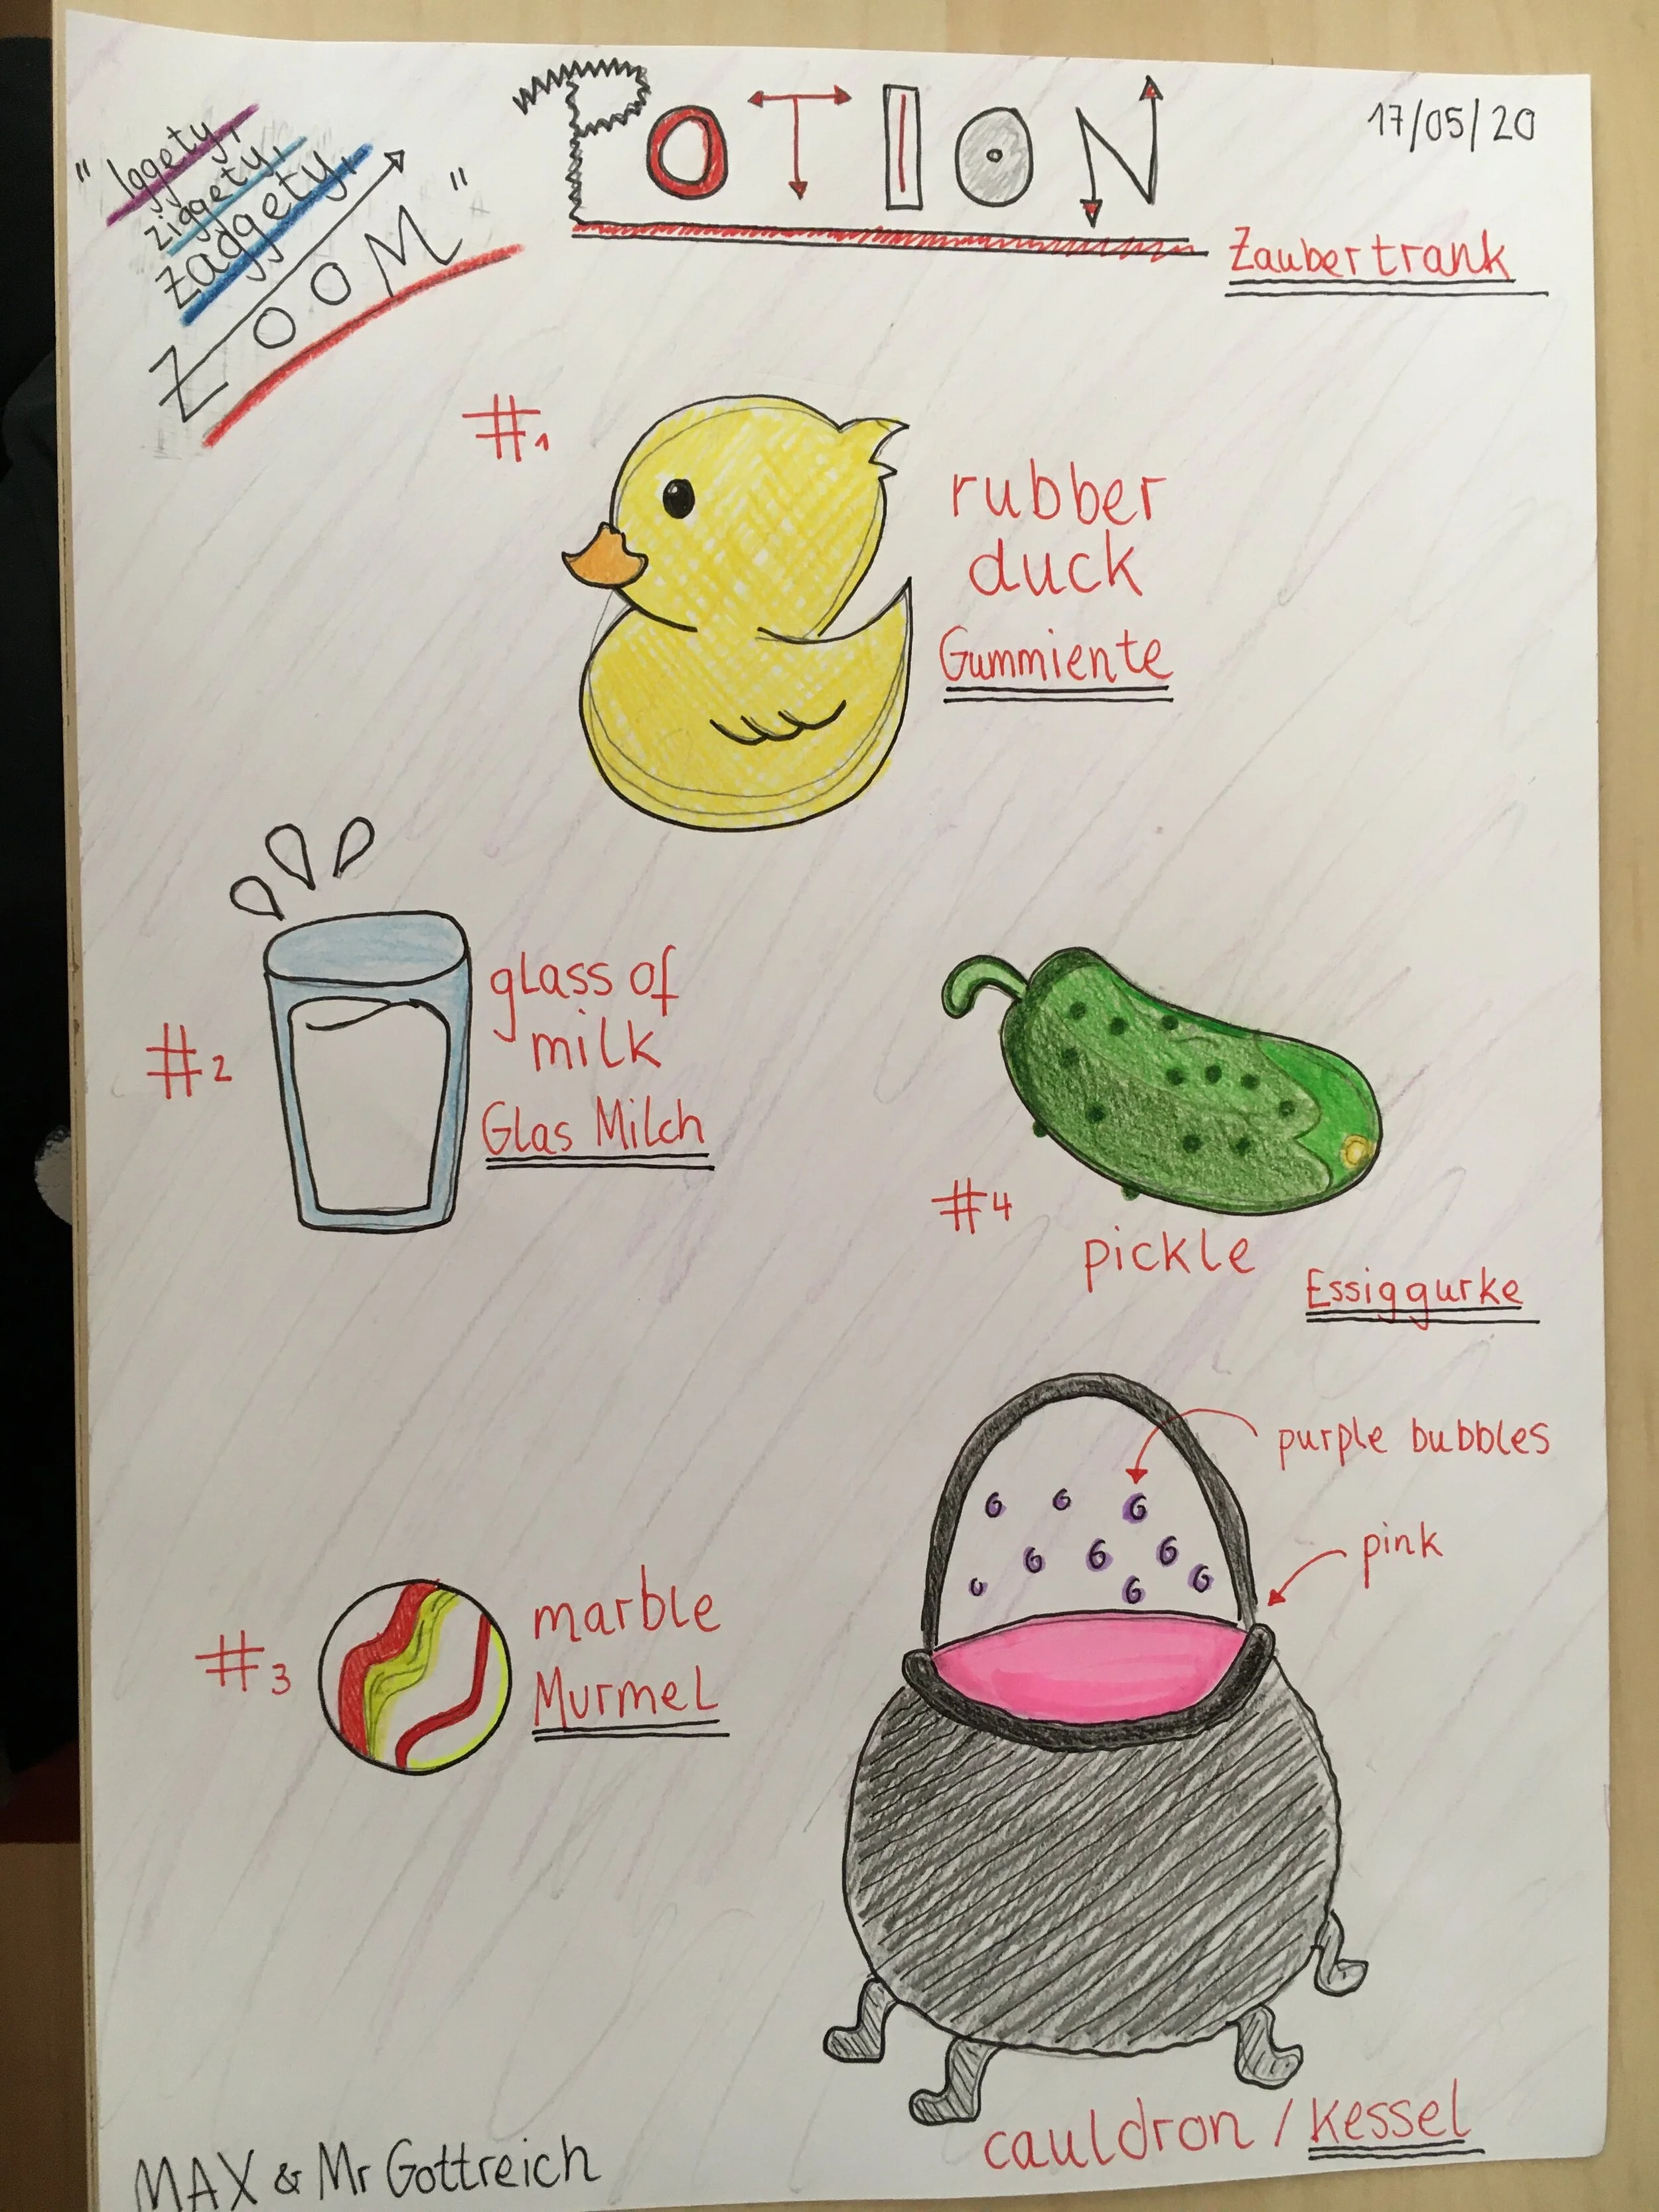 "Iggety,
ziggety,
zaggety,
ZOOM"
POTION
17/05/20
Zaubertrank
#1
rubber
duck
Gummiente
#2
glass of
milk
Glas Milch
#4
pickle
Essiggurke
purple bubbles
pink
#3
marble
Murmel
cauldron / Kessel
MAX & Mr Gottreich